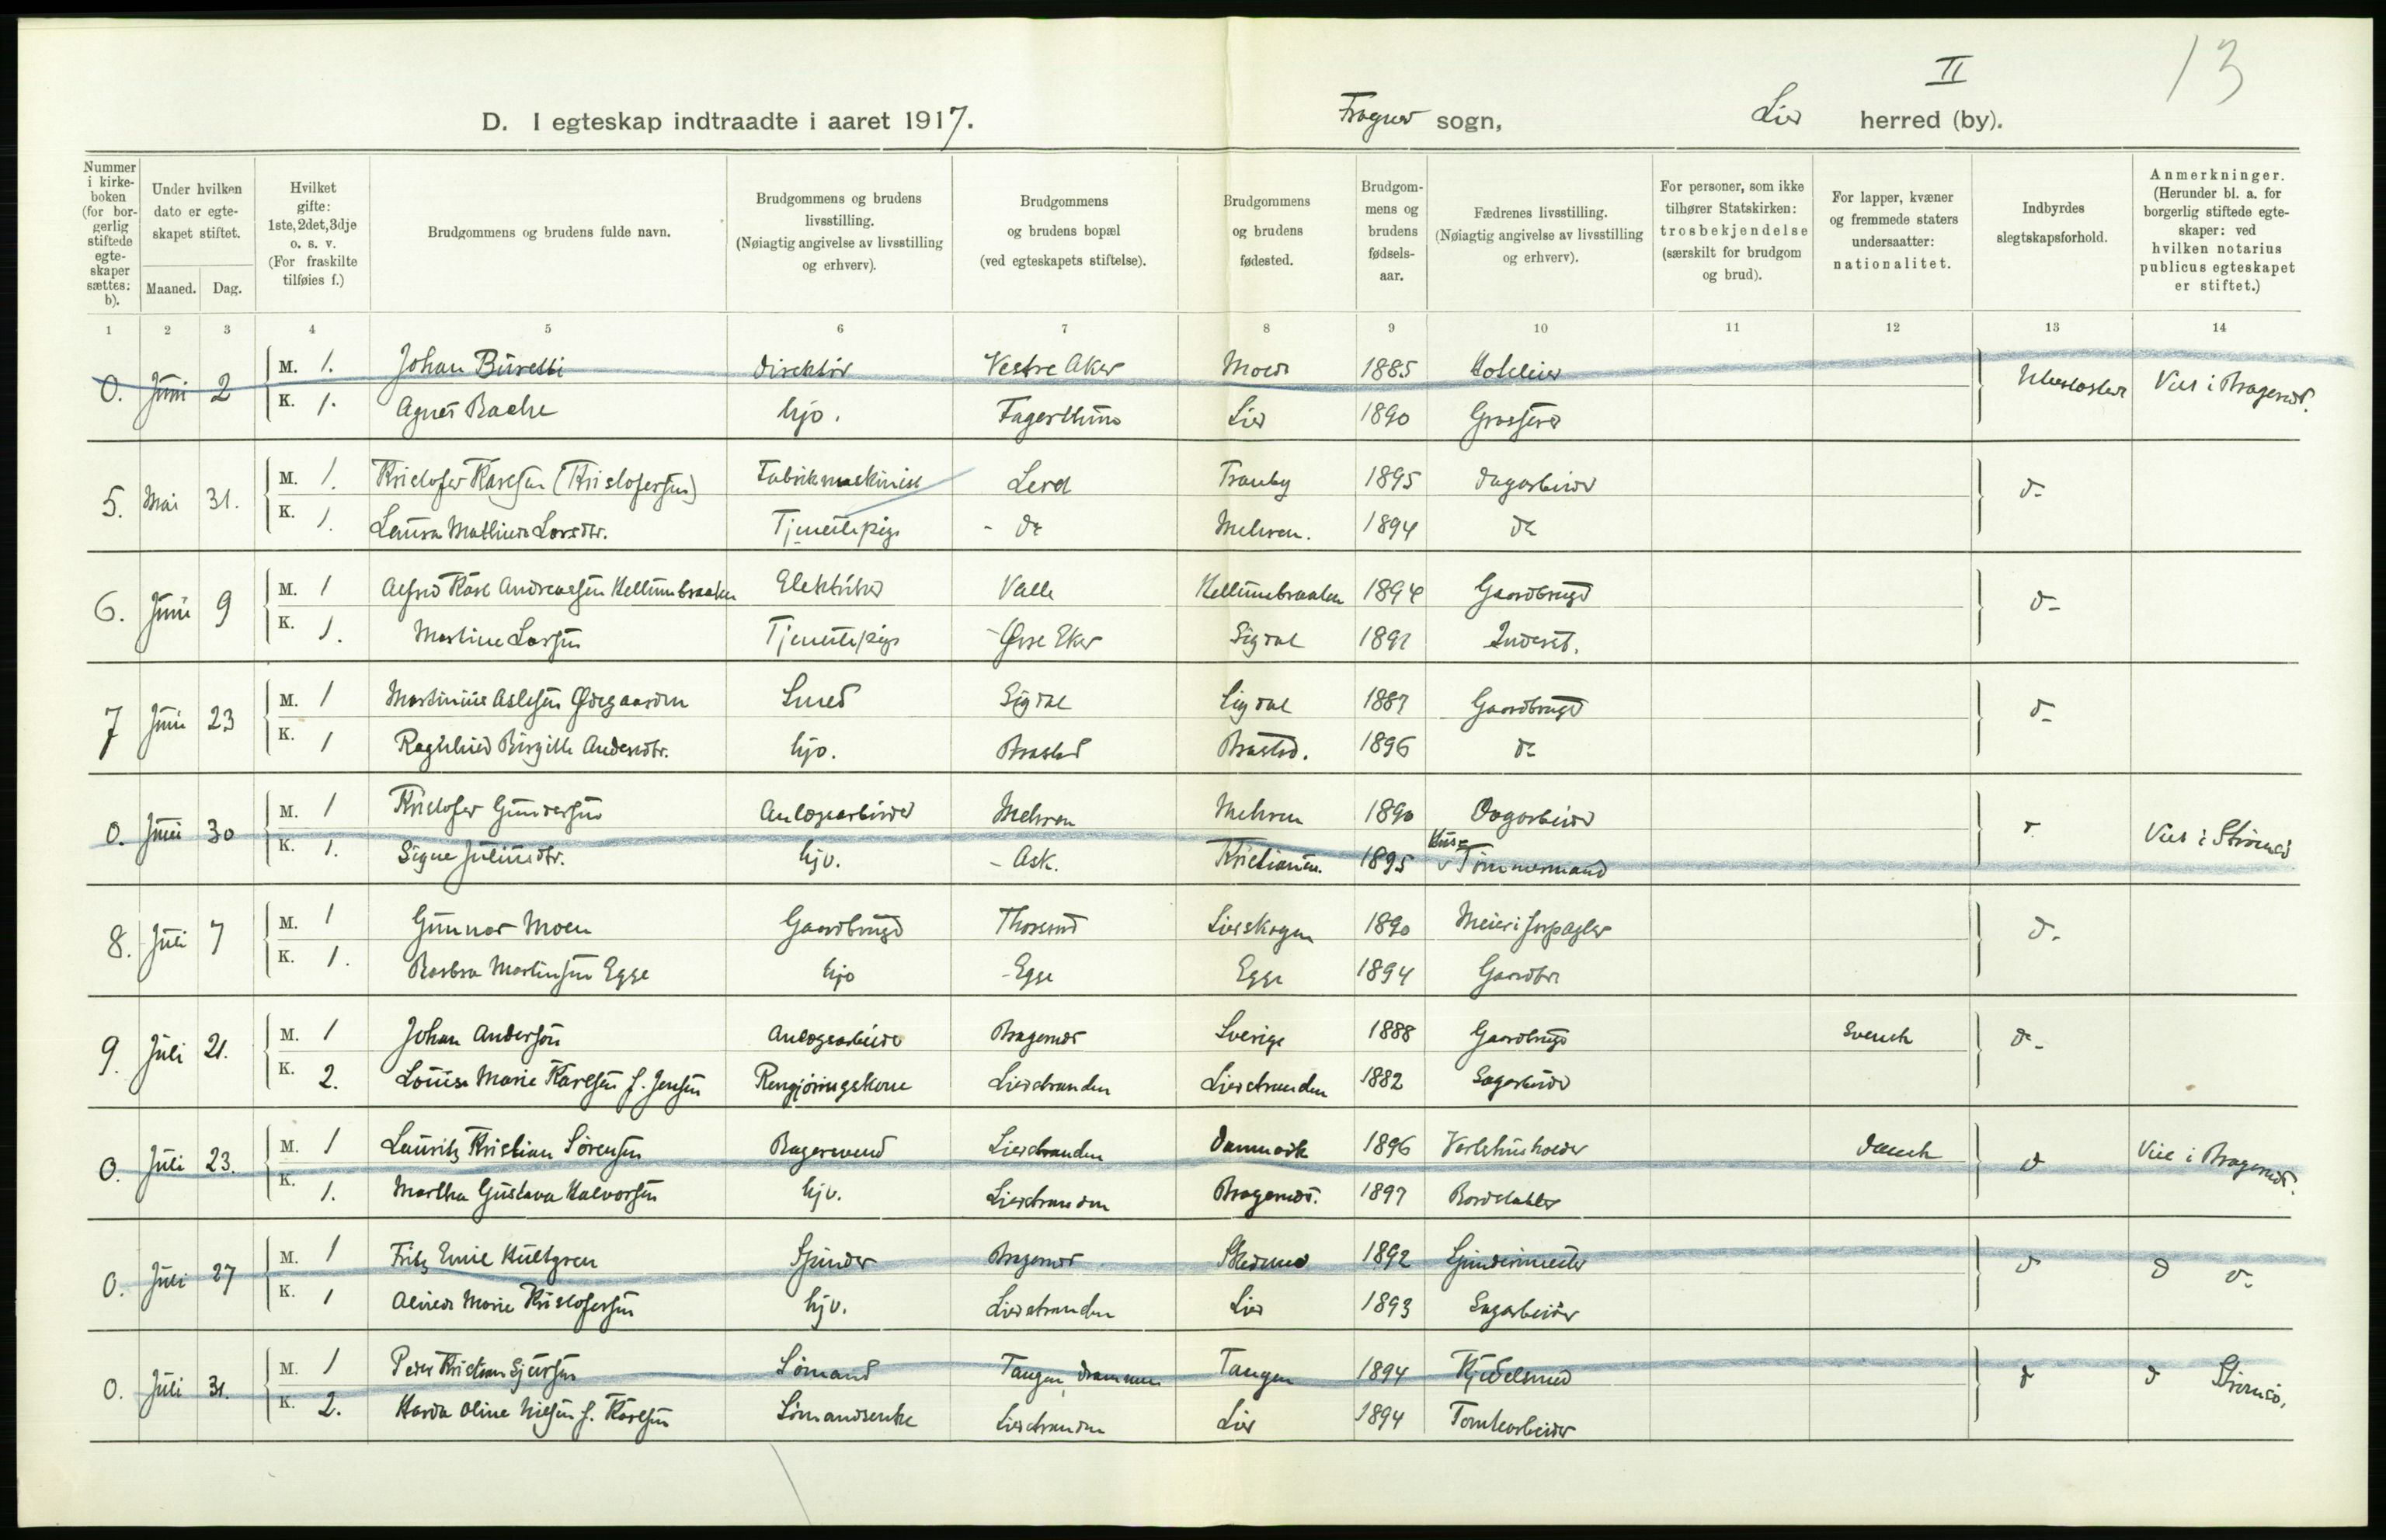 II
13
D. I egteskap indtraadte i aaret 1917. Frogner sogn, Lier herred (by).
Nummer i kirkeboken (for borgerlig stiftede egteskaper sættes: b).
Under hvilken dato er egteskapet stiftet.
Maaned. Dag.
Hvilket gifte: 1ste, 2det, 3dje o. s. v. (For fraskilte tilføies f.)
Brudgommens og brudens fulde navn.
Brudgommens og brudens livsstilling. (Nøiagtig angivelse av livsstilling og erhverv).
Brudgommens og brudens bopæl (ved egteskapets stiftelse).
Brudgommens og brudens fødested.
Brudgommens og brudens fødselsaar.
Fædrenes livsstilling. (Nøiagtig angivelse av livsstilling og erhverv).
For personer, som ikke tilhører Statskirken: trosbekjendelse (særskilt for brudgom og brud).
For lapper, kvæner og fremmede staters undersaatter: nationalitet.
Indbyrdes slegtskapsforhold.
Anmerkninger. (Herunder bl. a. for borgerlig stiftede egteskaper: ved hvilken notarius publicus egteskapet er stiftet.)
1 2 3 4 5 6 7 8 9 10 11 12 13 14
0. Juni 2 M. 1. Johan Büretti direktör Vestre Aker Moss 1885 Ubeslegtet Viet i Bragernes.
K. 1. Agnes Bache hjv. Lier 1890 Grosserer
5. Mai 31. M. 1. Kristofer Karlsen (Kristofersen) Fabrikmaskinist Tranby 1895 dagarbeider d-
K. 1. Laura Mathilde Larsdtr. Tjenestepige - do Mehren. 1894 do
6. Juni 9 M. 1 Alfred Karl Andreassen Hellumbraaten Elektriker Valle Hellumbraaten 1894 Gaardbruger d-
K. 1. Martine Larsen Tjenestepige - Øvre Eker Sigdal 1891 Inderst.
7 Juni 23 M. 1 Martinius Aslesen Ødegaarden Smed Sigdal Sigdal 1887 Gaardbruger d-
K. 1 Ragnhild Birgitte Andersdtr. hjv. 1896 do
0. Juni 30 M. 1 Kristofer Gundersen Anlægsarbeider Mehren Mehren 1890 Dagarbeider d. Viet i Strømsø
K. 1. Signe Juliusdtr. hjv. - Ask. Kristiania. 1895 Hus- Tømmermand
8. Juli 7 M. 1 Gunnar Moen Gaardbruger Thorsrud Lierskogen 1890 Meieriforpagter d-
K. 1. Barbra Martinsen Egge hjv - Egge Egge 1894 Gaardbr
9. Juli 21. M. 1 Johan Anderson Anlægsarbeider Bragernes Sverige 1888 Gaardbruger Svensk d-
K. 2. Louise Marie Karlsen f. Jensen Rengjøringskone Lierstranden Lierstranden 1882 Sagarbeider
0. Juli 23. M. 1 Lauritz Kristian Sørensen Bagersvend Lierstranden Danmark 1896 Vertshusholder dansk d Viet i Bragernes.
K. 1. Martha Gustava Halvorsen hjv. Lierstranden Bragernes. 1897 Bordstabler
0. Juli 27 M. 1 Fritz Emil Hultgren Gjørtler Bragernes 1892 d d d-
K. 1 Alvilde Marie Kristofersen hjv. Lierstranden Lier 1893 Sagarbeider
0. Juli 31. M. 1 Peder Kristian Sjursen Sømand Tangen, Drammen Tangen 1894 Kjedelsmed d d Strømsø,
K. 2. Harda Oline Nilsen f. Karlsen Sømandsenke Lierstranden Lier 1894 Tomtearbeider